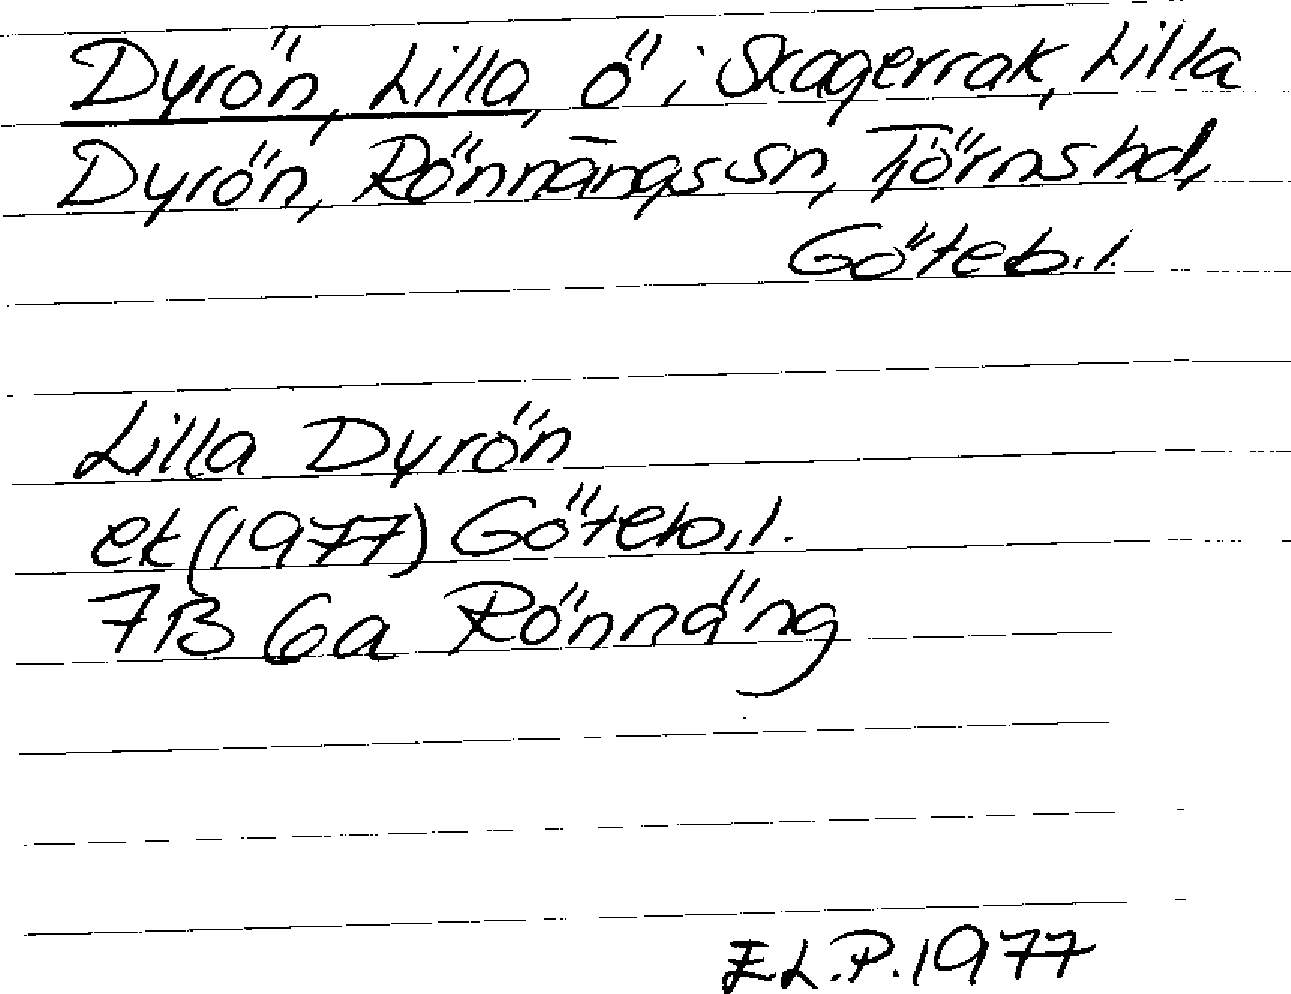 Dyrön, Lilla, ö i Skagerrak, Lilla
Dyrön, Rönnängs sn, Tjörns hd,
Göteb. l.
Lilla Dyrön
ek (1977) Göteb. l.
7B 6a Rönnäng
E L. P. 1977